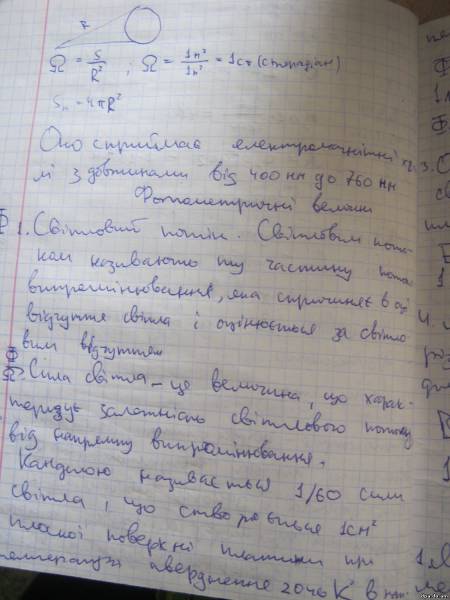 R
Ω = S/R² ; Ω = 1м²/1м² = 1ст (стерадіан)
Sп = 4πR²
Око сприймає електромагнітні хви
лі з довжинами від 400 нм до 760 нм
Фотометричні величини
Ф 1. Світловий потік. Світловим пото
ком називають ту частину пото
випромінювання, яка спричиняє в оці
відчуття світла і оцінюється за світло
вим відчуттям
Ф/Ω. Сила світла – це величина, що харак-
теризує залежність світлового потоку
від напрямку випромінювання.
Канделою називається 1/60 сили
світла, що створюється 1см²
плоскої поверхні платини при
температурі твердіння 2046 К в